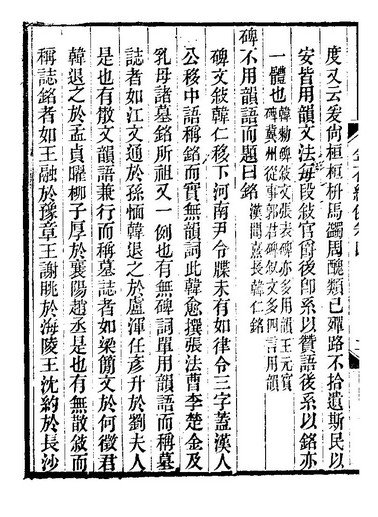 度又云爰尚桓桓枿馬蠲周醜類已殫路不拾遺斯民以
安皆用韻文法每段敘官爵後卽系以贊語後系以銘亦
一體也
韓勅碑敘文張表碑亦多用韻王元賓
碑冀州從事郭君碑敘文多四言用韻
碑不用韻語而題曰銘
漢聞嘉長韓仁銘
碑文敘韓仁移下河南尹令牒末有如律令三字蓋漢人
公移中語稱銘而實無韻詞此韓愈撰張法曹李楚金及
乳母諸墓銘所祖又一例也有無碑詞單用韻語而稱墓
誌者如江文通於孫緬韓退之於盧渾任彥升於劉夫人
是也有散文韻語兼行而稱墓誌者如梁簡文於何徵君
韓退之於孟貞曜柳子厚於襄陽趙丞是也有無散敘而
稱誌銘者如王融於豫章王謝眺於海陵王沈約於長沙